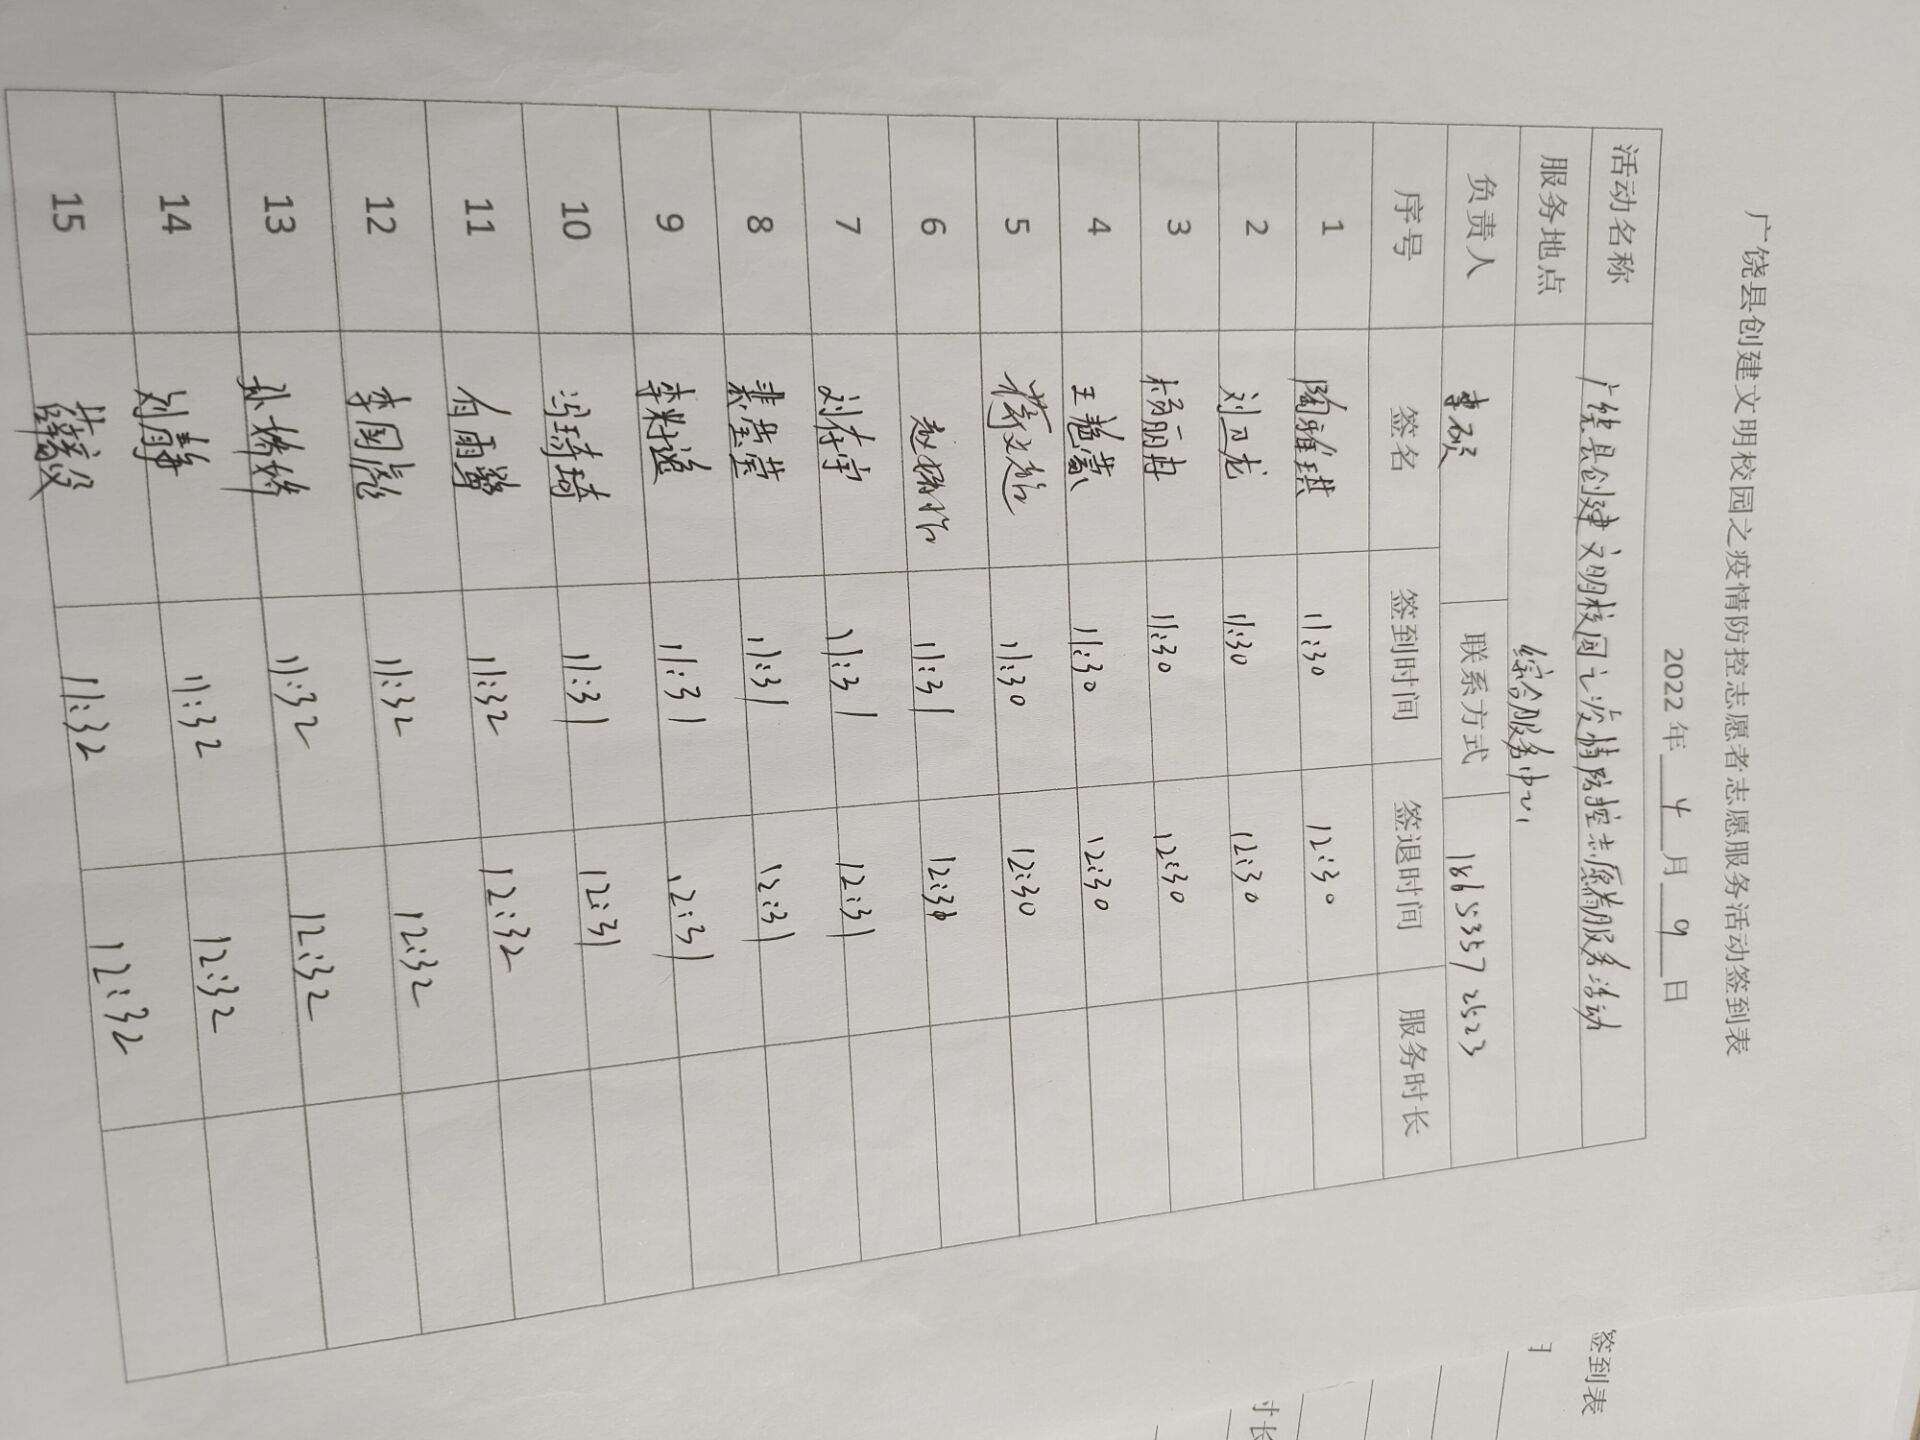 广饶县创建文明校园之疫情防控志愿者志愿服务活动签到表
2022 年 4 月 9 日
活动名称 广饶县创建文明校园之疫情防控志愿者服务活动
服务地点 综合服务中心
负责人 李硕 联系方式 18653572523
序号 签名 签到时间 签退时间 服务时长
1 陶雅琪 11:30 12:30
2 刘卫龙 11:30 12:30
3 杨丽冉 11:30 12:30
4 王艳 11:30 12:30
5 11:30 12:30
6 赵 11:31 12:31
7 刘存宇 11:31 12:31
8 裴莹莹 11:31 12:31
9 李 11:31 12:31
10 冯琦琦 11:31 12:31
11 11:32 12:32
12 李国彪 11:32 12:32
13 孙婷婷 11:32 12:32
14 刘 11:32 12:32
15 11:32 12:32
签到表
日
时长